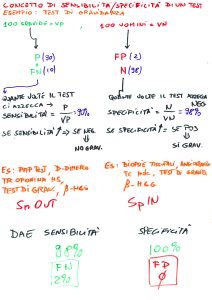 CONCETTO DI SENSIBILITÀ/SPECIFICITÀ DI UN TEST
ESEMPIO: TEST DI GRAVIDANZA
100 GRAVIDE = VP
100 UOMINI = VN
P (90)
FN (10)
FP (2)
N (98)
QUANTE VOLTE IL TEST
CI AZZECCA → P/VP = 90%
SE SENSIBILITÀ ↑ → SE NEG
↓
NO GRAV.
QUANTE VOLTE IL TEST AZZECCA
NEG
N/VN = 98%
SE SPECIFICITÀ ↑ → SE POS
↓
SÌ GRAV.
ES: PAP TEST, D-DIMERO
TROPONINA HS,
TEST DI GRAV.,
β-HCG
Sn OUT
ES: BIOPSIE TISSUTALI,
TC MDC, TEST DI GRAV.,
β-HCG
Sp IN
DAE SENSIBILITÀ
98%
FN
2%
SPECIFICITÀ
100%
FP
∅